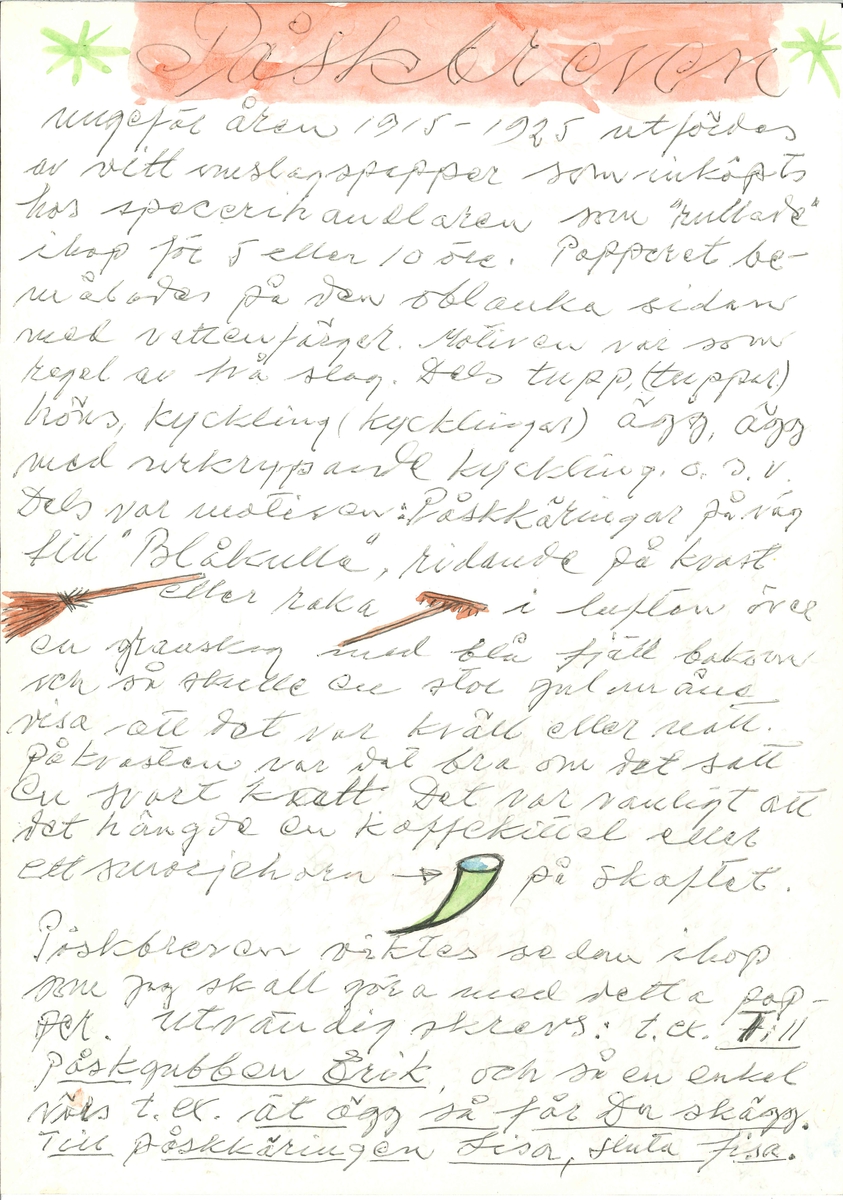 Påskbreven
ungefär åren 1915-1925 utfördes
av vitt omslagspapper som inköpts
hos specerihandlaren som "rullade"
ihop för 5 eller 10 öre. Papperet be-
målades på den oblanka sidan
med vattenfärger. Motiven var som
regel av två slag. Dels tupp, (tuppar)
höns, kyckling (kycklingar) ägg, ägg
med urkrypande kyckling. o.s.v.
Dels var motiven: Påskkäringar på väg
till "Blåkulla", ridande på kvast
eller raka i luften över
en granskog med blå fjäll bakom
och så skulle en stor gul måne
visa att det var kväll eller natt.
På kvasten var det bra om det satt
en svart katt. Det var vanligt att
det hängde en kaffekittel eller
ett smörjehorn → på skaftet.
Påskbreven viktes sedan ihop
som jag skall göra med detta pap-
per. Utvändig skrevs: t.ex. Till
Påskgubben Erik, och så en enkel
värs t.ex. ät ägg så får Du skägg.
Till påskkäringen Lisa, sluta fisa.